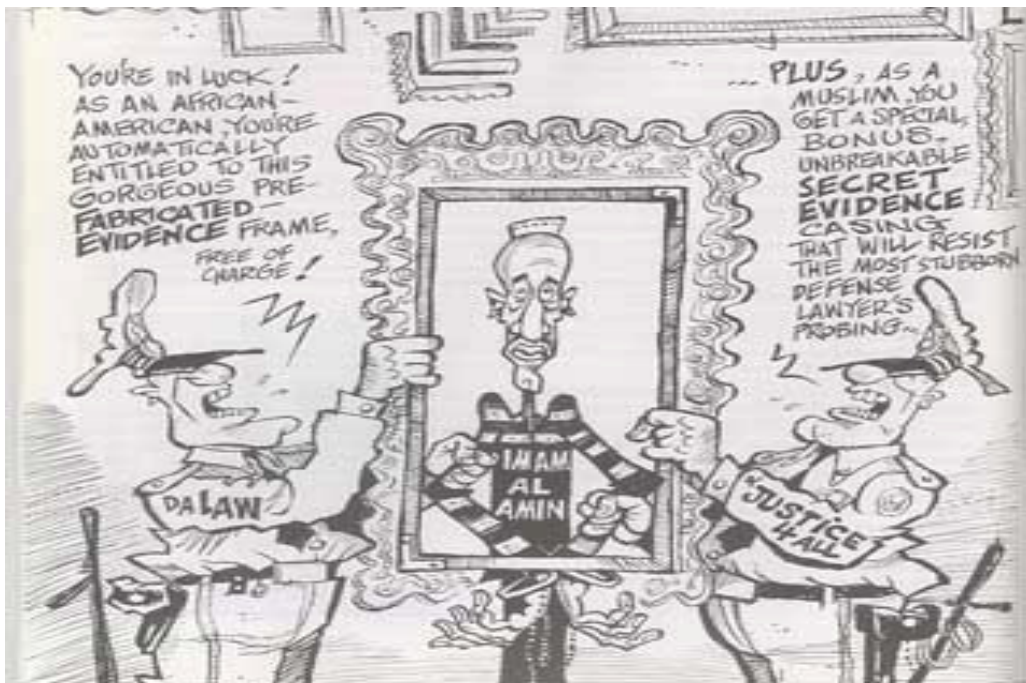 YOU'RE IN LUCK!
AS AN AFRICAN-
AMERICAN, YOU'RE
AUTOMATICALLY
ENTITLED TO THIS
GORGEOUS PRE-
FABRICATED-
EVIDENCE FRAME,
FREE OF
CHARGE!
... PLUS, AS A
MUSLIM, YOU
GET A SPECIAL
BONUS-
UNBREAKABLE
SECRET
EVIDENCE
CASING
THAT WILL RESIST
THE MOST STUBBORN
DEFENSE
LAWYER'S
PROBING~
IMAM
AL
AMIN
DA LAW
"JUSTICE
4 ALL"